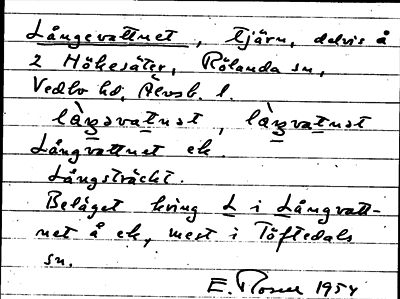 Långevattnet, tjärn, delvis å
2 Hökesäter, Rölanda sn,
Vedbo hd, Älvsb. l.
làŋəvatnət, làŋvatnət
Långvattnet ek.
Långsträckt.
Beläget kring L i Långvatt-
net å ek, mest i Töftedals
sn.
E. Rosell 1954